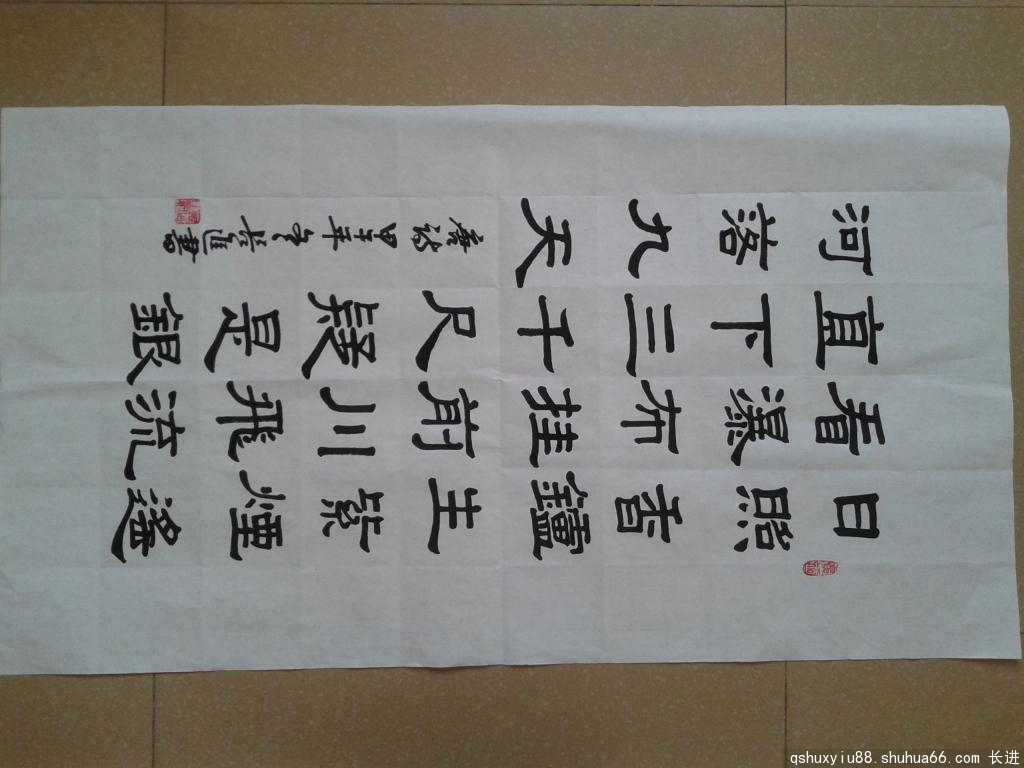 日照香鑪生紫煙遙
看瀑布挂前川飛流
直下三千尺疑是銀
河落九天
唐詩 甲午年 长進書
qshuxyiu88.shuhua66.com 长进